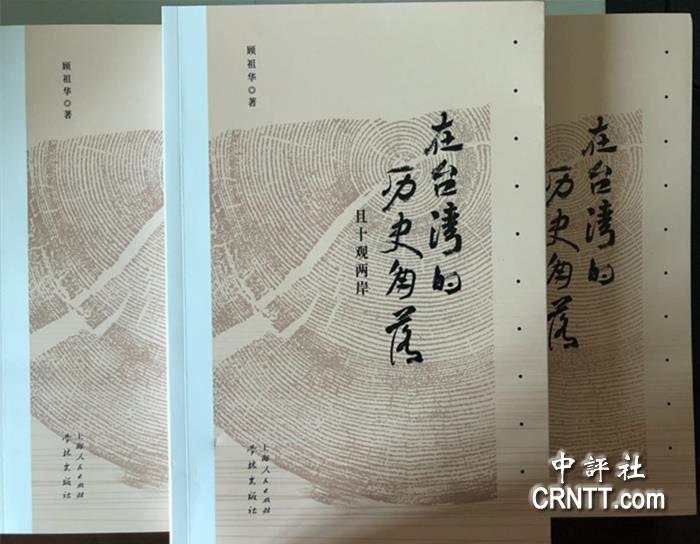 顾祖华◎著
上海人民出版社
学林出版社
顾祖华◎著
在台湾的
历史角落
且十观两岸
上海人民出版社
学林出版社
在台湾的
历史角落
中評社
CRNTT.com